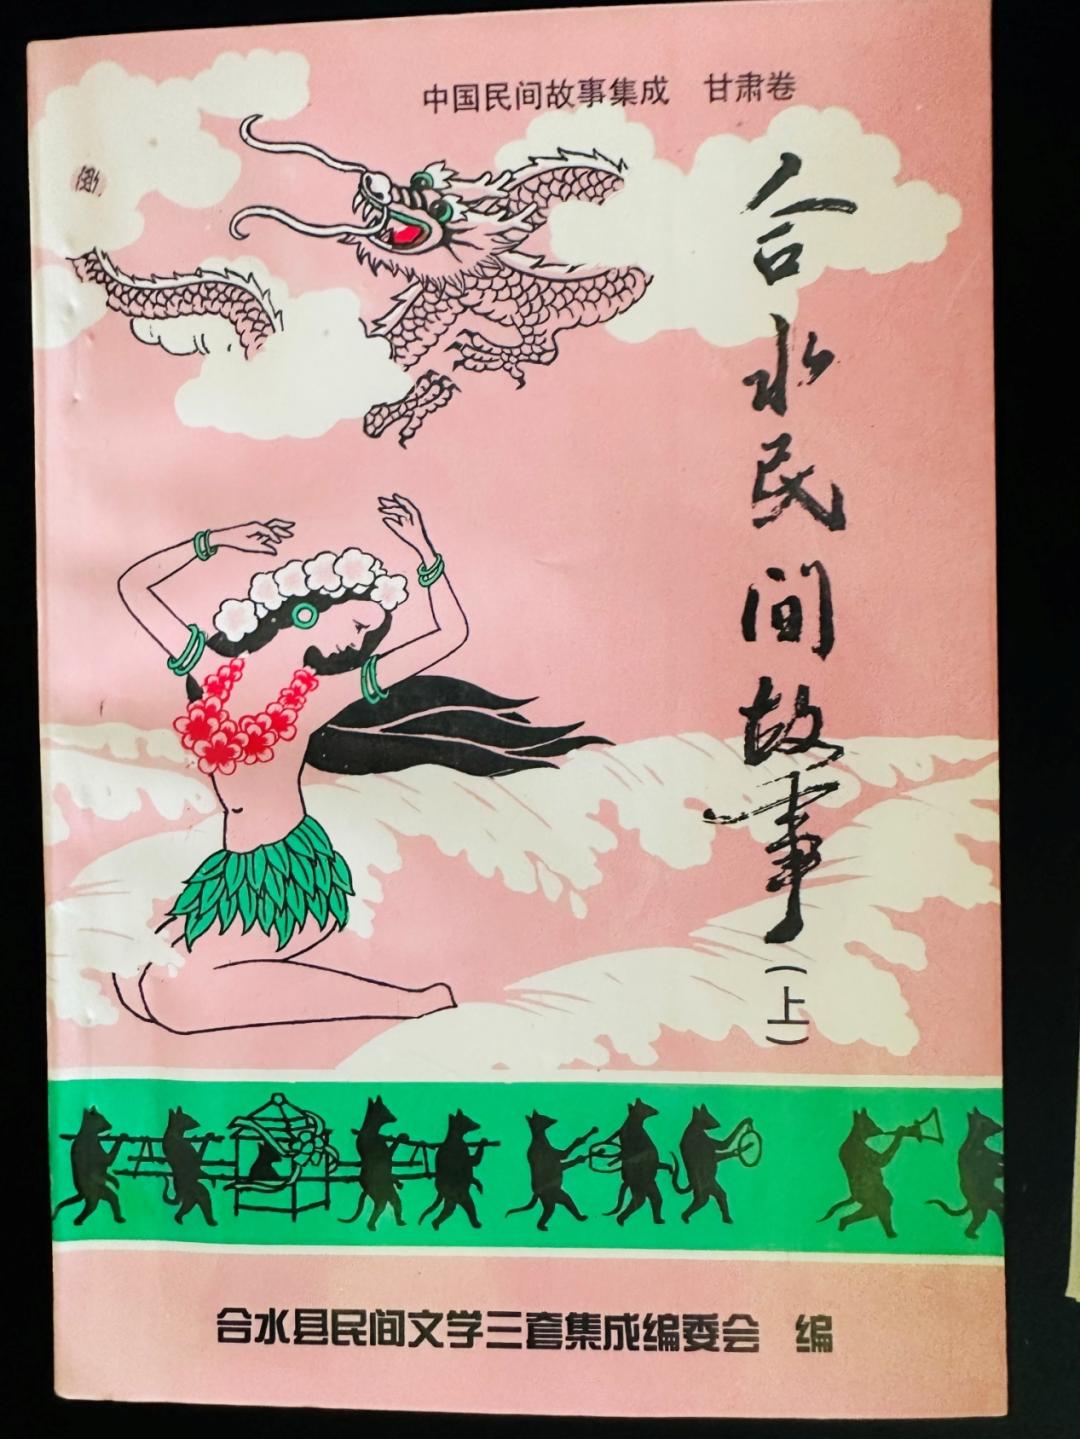 中国民间故事集成 甘肃卷
合水民间故事
(上)
合水县民间文学三套集成编委会 编